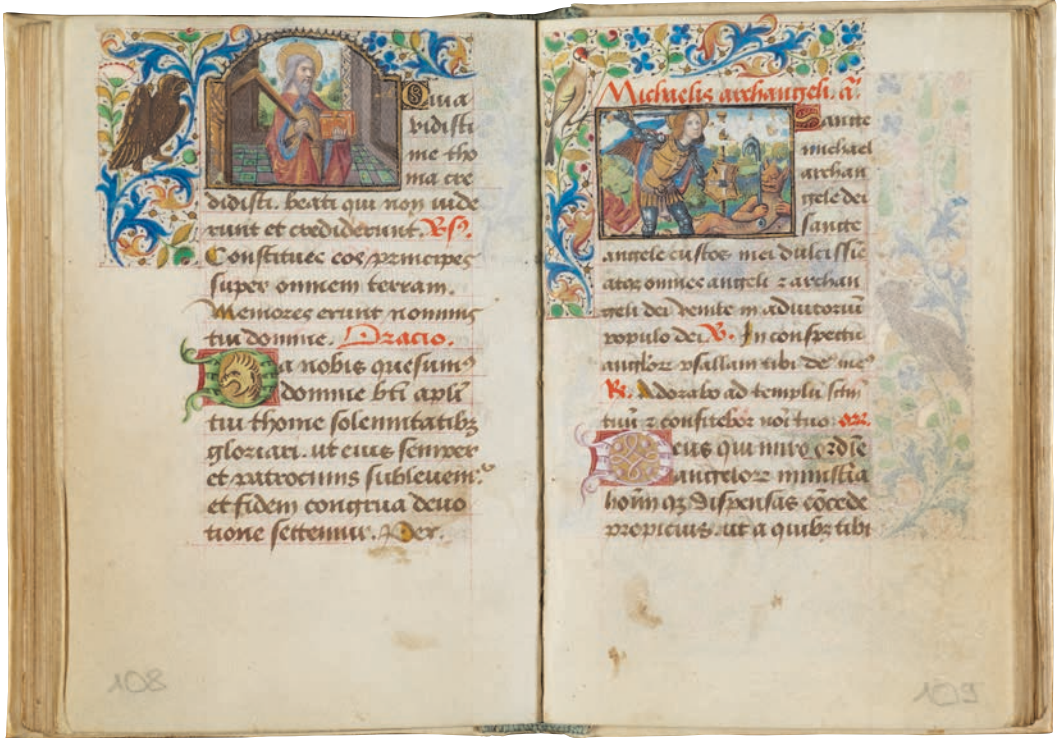 Quia
vidisti
me tho
ma cre
didisti. beati qui non vide
runt et crediderunt. Rs.
Constitues eos principes
super omnem terram.
Memores erunt nominis
tui domine. Oracio.
Da nobis quesumus
domine bti apli
tui thome solennitatibz
gloriari. ut eius semper
et patrociniis sublevem.
et fidem congrua devo
tione sectemur. Per.
108
Michaelis archangeli. a.
Sancte
michael
archan
gele dei
sancte
angele custos mei dulcissie
atqz omnes angeli z archan
geli dei venite in adiutoriu
populo dei V. In conspectu
anglorz psallam tibi de me9
R. Adorabo ad templu sctm
tuu z confitebor noi tuo. or.
Deus qui miro ordie
angelorz ministia
hoim qz dispensas cocede
propicius. ut a quibz tibi
109